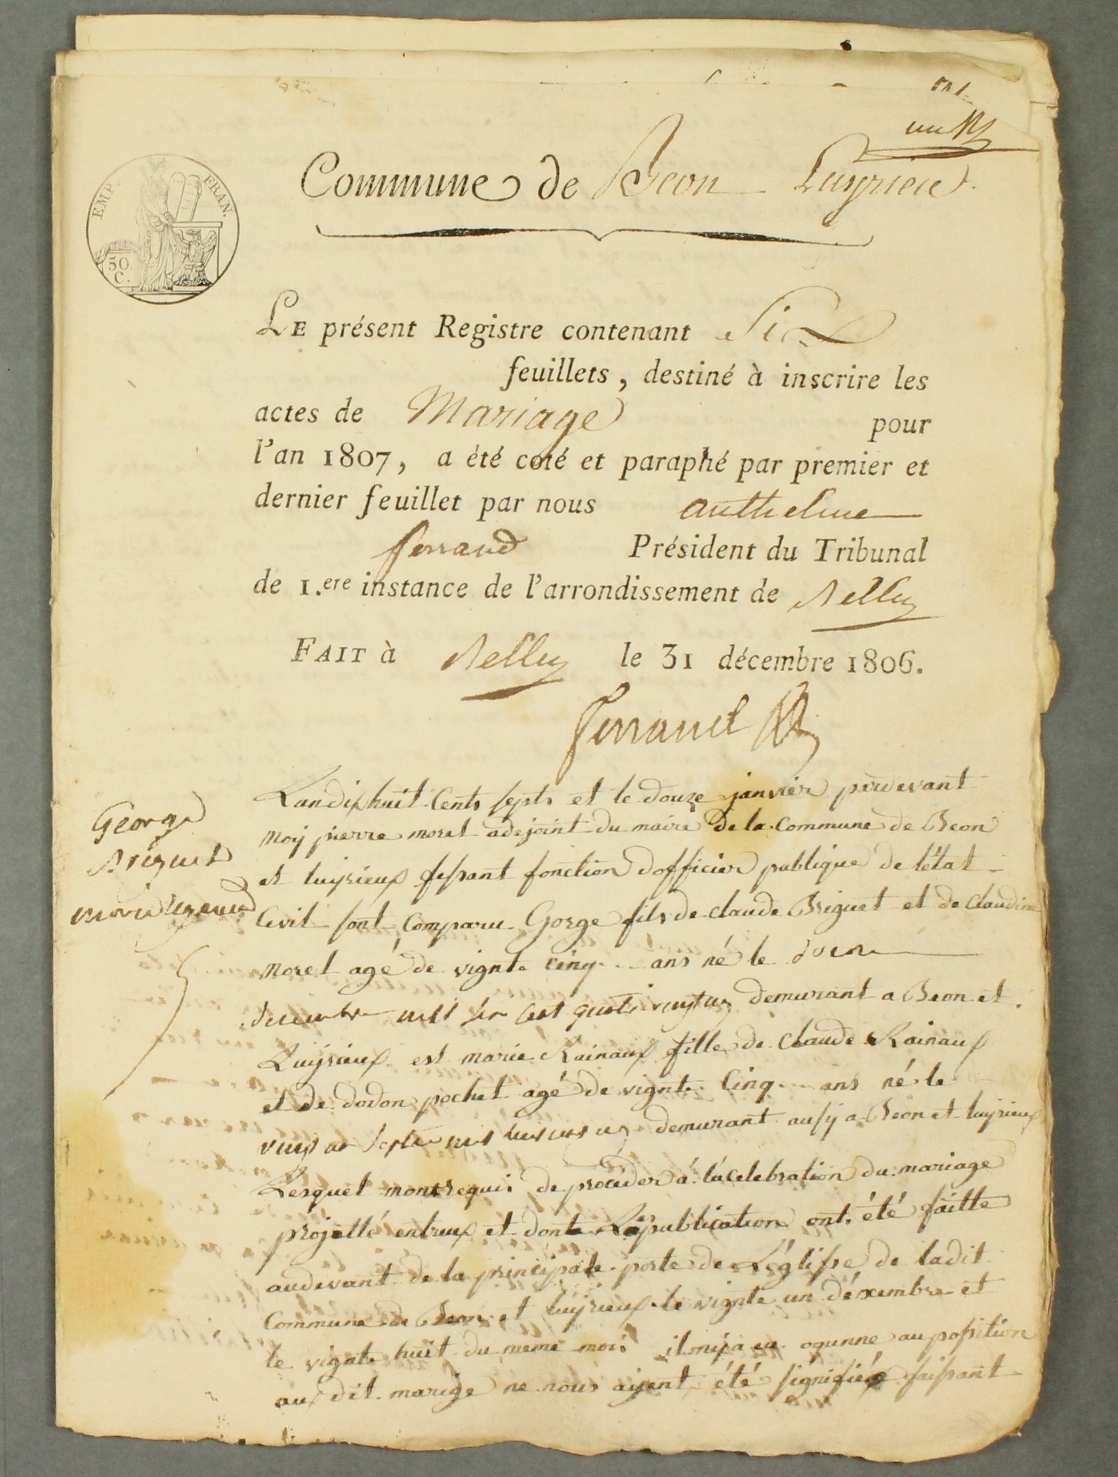 un
Commune de Beon Luyrieu
EMP. FRAN.
50 C.
LE présent Registre contenant Six
feuillets, destiné à inscrire les
actes de Mariage pour
l'an 1807, a été coté et paraphé par premier et
dernier feuillet par nous anthelme
ferrand Président du Tribunal
de 1.ere instance de l'arrondissement de Belley
FAIT à Belley le 31 décembre 1806.
ferrand
George
Briguet
marie
Landixhuit Cents septs et le douze janvier pardevant
moy pierre moret adejoint du maire de la Commune de Beon
et luyrieux fessant fonction dofficier publique de létat
Civil sont Comparu Gorge fils de claude Briguet et de Claudine
Moret agé de vignte cinq ans né le
demurant a Beon et
Luyrieux est marie Rainaux fille de Claude Rainaux
et de dodon pochet agé de vignte Cinq ans né le
demurant ausy a Beon et luyrieux
Lesquel mont requis de procéder á la celebration du mariage
projetté entreux et donte Lapublication ont été faitte
audevant de la principale porte de Léglisse de ladit
Commune de Beon et luyrieux le vignte un déxembre et
le vignte huit du meme mois il nixa eu ogunne auposition
aux dit marige ne nous ayant été signifiéz faissant